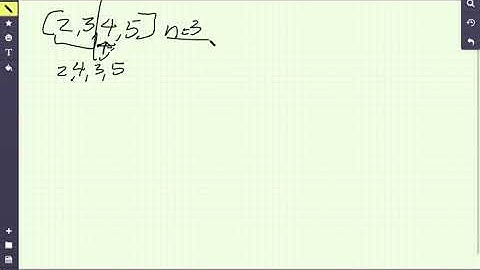 [2,3,4,5] n=3
2,4,3,5